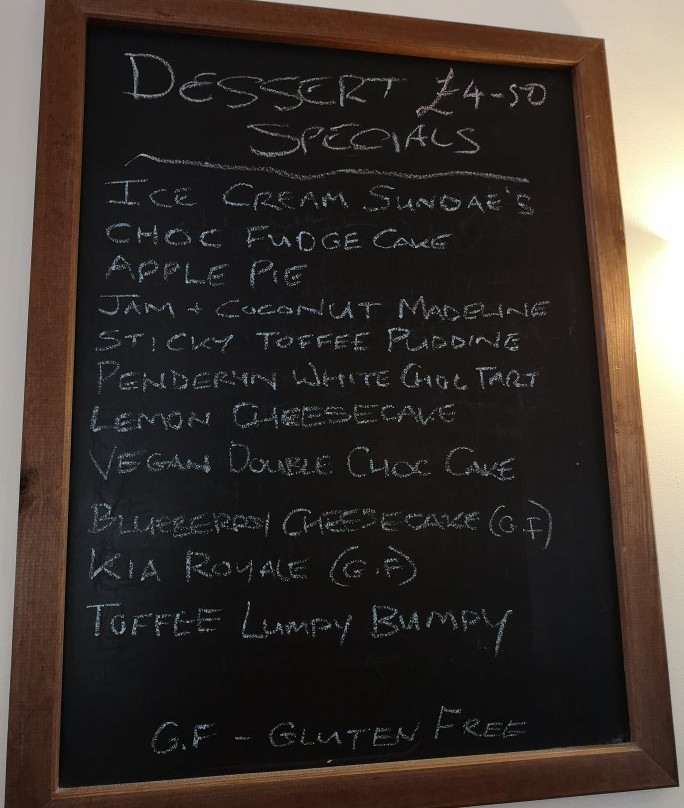 DESSERT £4-50
SPECIALS
ICE CREAM SUNDAE'S
CHOC FUDGE CAKE
APPLE PIE
JAM + COCONUT MADELINE
STICKY TOFFEE PUDDING
PENDERYN WHITE CHOC TART
LEMON CHEESECAKE
VEGAN DOUBLE CHOC CAKE
BLUEBERRY CHEESECAKE (G.F)
KIA ROYALE (G.F)
TOFFEE LUMPY BUMPY
G.F - GLUTEN FREE